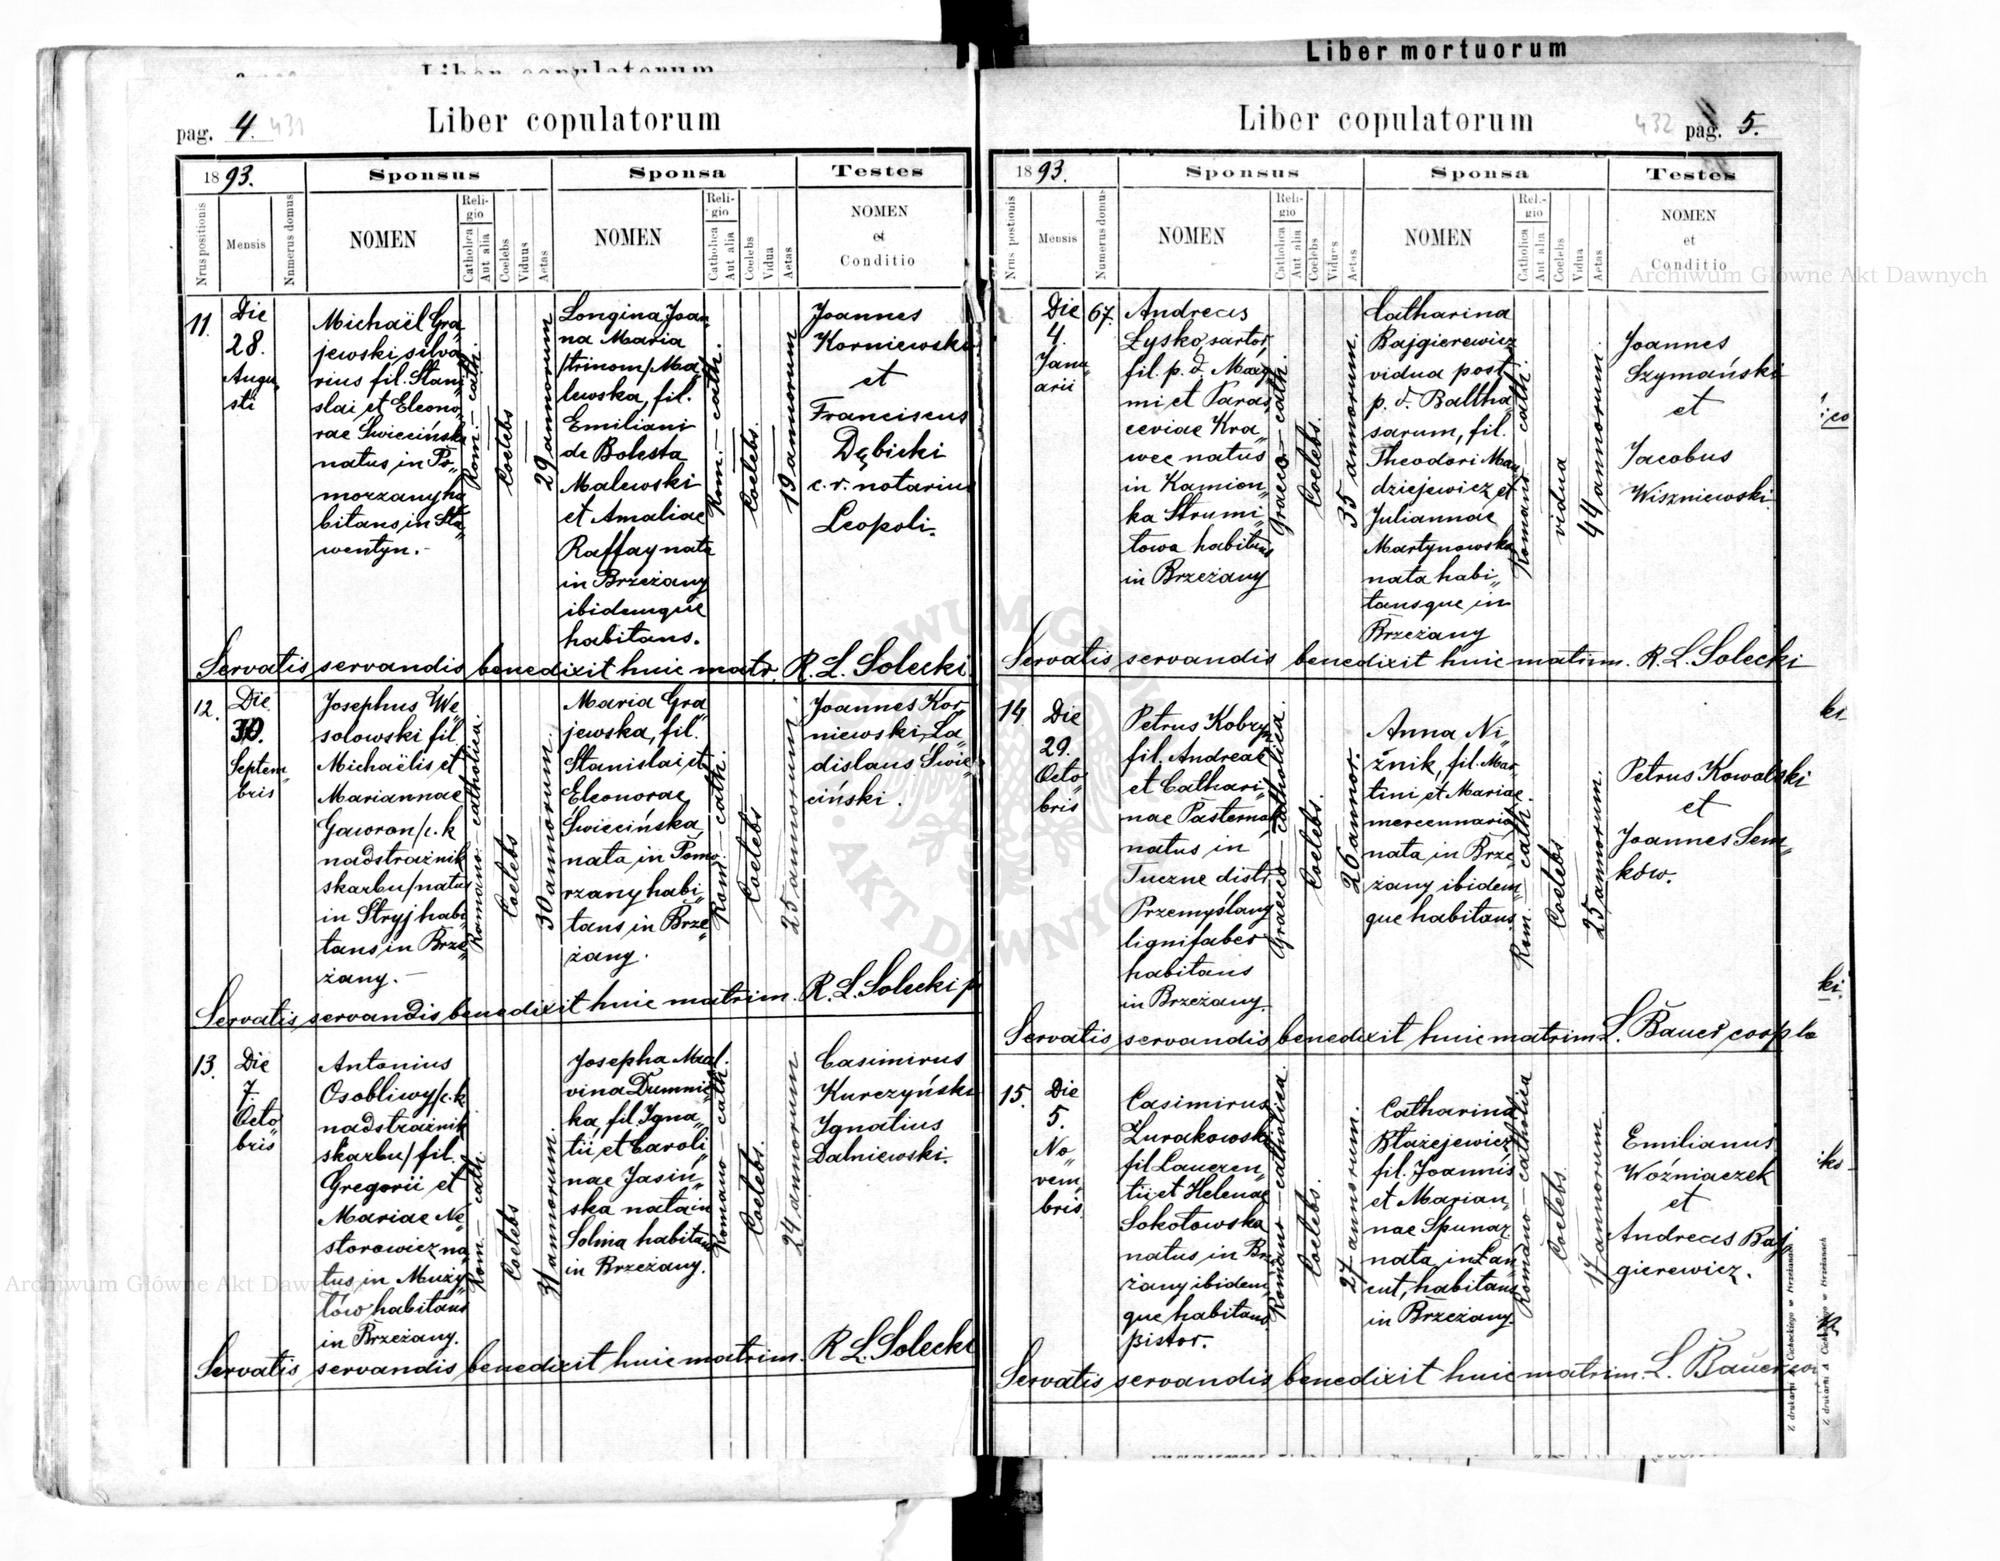 Liber mortuorum
Liber copulatorum
pag. 4. 431
Liber copulatorum
1893.
Sponsus
Sponsa
Testes
Nrus positionis
Mensis
Numerus domus
NOMEN
Reli-
gio
Catholica
Aut alia
Coelebs
Viduus
Aetas
NOMEN
Reli-
gio
Catholica
Aut alia
Coelebs
Vidua
Aetas
NOMEN
et
Conditio
11.
Die
28.
Augu„
sti
Michaël Gra„
jewski silva„
rius fil. Stani„
slai et Eleono„
rae Swiecińska
natus in Po„
morzany ha„
bitans in Sta„
wentyn.-
Rom. - cath.
Coelebs
29 annorum
Longina Joan„
na Maria
/trinom/ Ma„
lewska, fil.
Emiliani
de Bolesta
Malewski
et Amaliae
Raffay nata
in Brzeżany
ibidemque
habitans.
Rom. - cath.
Coelebs.
19 annorum
Joannes
Korniewski
et
Franciscus
Dębicki
c. r. notarius
Leopoli.
Servatis servandis benedixit huic matr. R. L. Solecki
12.
Die
30.
Septem„
bris
Josephus We„
solowski fil.
Michaëlis et
Mariannae
Gaworon /c. k
nadstrażnik
skarbu/ natus
in Stryj habi„
tans in Brze„
żany.-
Romano - catholica.
Coelebs
30 annorum.
Maria Gra„
jewska, fil.
Stanislai et
Eleonorae
Swiecińska
nata in Pomo„
rzany habi„
tans in Brze„
żany.
Rom. - cath.
Coelebs
25 annorum.
Joannes Kor„
niewski, La„
dislaus Swie„
ciński.
Servatis servandis benedixit huic matrim. R. L. Solecki p
13.
Die
7.
Octo„
bris
Antonius
Osobliwy /c. k
nadstrażnik
skarbu/ fil.
Gregorii et
Mariae Ne„
storowicz na„
tus in Muży„
łów habitans
in Brzeżany.
Rom. - cath.
Coelebs
31 annorum.
Josepha Mal„
vina Dumnic„
ka, fil. Igna„
tii et Caroli„
nae Jasiń„
ska nata in
Solma habitans
in Brzeżany.
Romano - cath.
Coelebs.
24 annorum
Casimirus
Kurczyński
Ignatius
Dalniewski.
Servatis servandis benedixit huic matrim. R L. Solecki
Liber copulatorum
432 pag. 5.
1893.
Sponsus
Sponsa
Testes
Nrus postionis
Mensis
Numerus domus
NOMEN
Reli-
gio
Catholica
Aut alia
Coelebs
Viduus
Aetas
NOMEN
Reli-
gio
Catholica
Aut alia
Coelebs
Vidua
Aetas
NOMEN
et
Conditio
Die
4.
Janu„
arii
67.
Andreas
Łysko, sartor,
fil. p. d. Maxy„
mi et Paras„
ceviae Kra„
wec natus
in Kamion„
ka Strumi„
łowa habitans
in Brzeżany
Graeco - cath.
Coelebs.
35 annorum.
Catharina
Bajgierewicz
vidua post
p. d. Baltha„
sarum, fil.
Theodori Man„
dziejewicz et
Juliannae
Martynowska
nata habi„
tansque in
Brzeżany
Romano - cath.
vidua
44 annorum.
Joannes
Szymański
et
Jacobus
Wiszniewski.
Servatis servandis benedixit huic matrim. R. L. Solecki
14
Die
29.
Octo„
bris
Petrus Kobryn
fil. Andreae
et Cathari„
nae Pasternak
natus in
Tuczne distr.
Przemyślany
lignifaber
habitans
in Brzeżany.
Graeco - catholica.
Coelebs.
26 annor.
Anna Ni„
żnik, fil. Mar„
tini et Mariae
mercennaria
nata in Brze„
żany ibidem„
que habitans
Rom. - cath.
Coelebs
25 annorum.
Petrus Kowalski
et
Joannes Sem„
ków.
Servatis servandis benedixit huic matrim. L. Bauer coop la
15.
Die
5.
No„
vem„
bris.
Casimirus
Żurakowski
fil. Lauren„
tii et Helenae
Sokołowska
natus in Brze„
żany ibidem„
que habitans.
pistor.
Romano - catholica.
Coelebs.
27 annorum.
Catharina
Błażejewicz
fil. Joannis
et Marian„
nae Spunar
nata in Łan„
cut, habitans
in Brzeżany.
Romano - catholica
Coelebs
17 annorum.
Emilianus
Woźniaczek
et
Andreas Baj„
gierewicz.
Servatis servandis benedixit huic matrim. L. Bauer
Archiwum Główne Akt Dawnych
Archiwum Główne Akt Dawnych